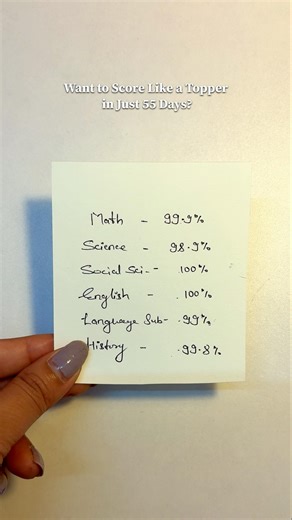 Want to Score Like a Topper
in Just 55 Days?
Math - 99.9%
Science - 98.9%
Social Sci- - 100%
English - 100%
Language Sub- .99%
History - .99.8%